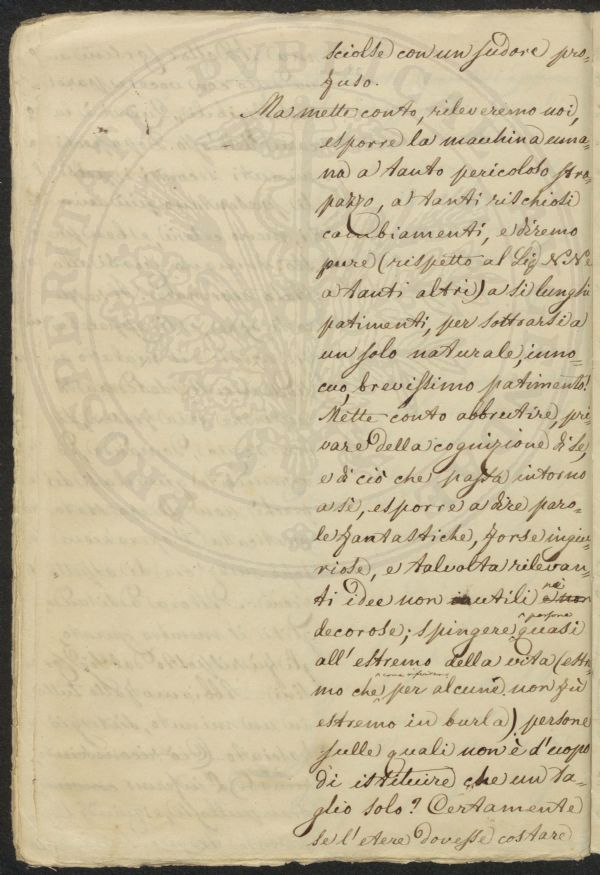 sciolse con un sudore pro-
fuso.
Ma mette conto, rileveremo noi,
esporre la macchina uma-
na a tanto pericoloso stra-
pazzo, a tanti rischiosi
cambiamenti, e diremo
pure (rispetto al Sig N. N. e
a tanti altri) a sì lunghi
patimenti, per sottrarsi a
un solo naturale, inno-
cuo, brevissimo patimento!
Mette conto abbrutire, pri-
vare della cognizione di se,
e di ciò che passa intorno
a sè, esporre a dire paro-
le fantastiche, forse ingiu-
riose, e talvolta rilevan-
ti idee non inutili nè
decorose; spingere quasi
all' estremo della vita (estre-
mo che per alcuni non fù
estremo in burla) persone
sulle quali non è d'uopo
di istituire che un ta-
glio solo? Certamente
se l'etere dovesse costare